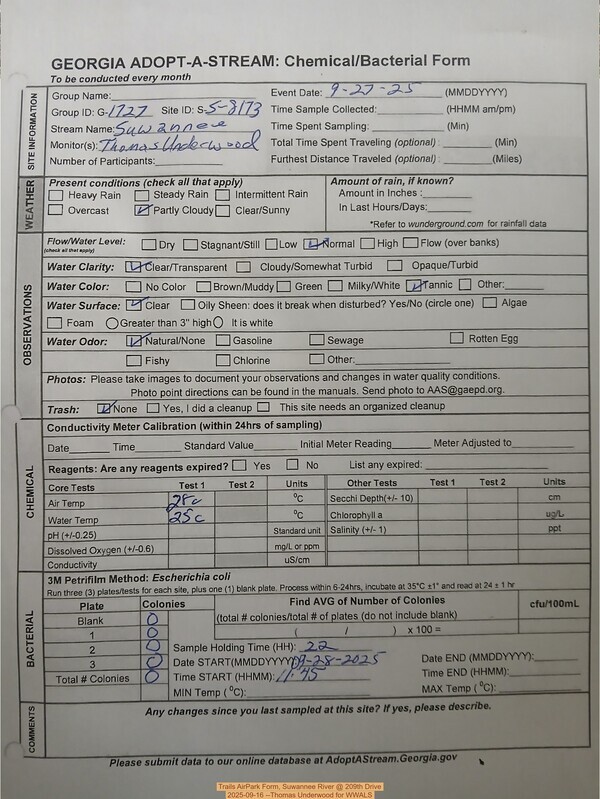 GEORGIA ADOPT-A-STREAM: Chemical/Bacterial Form
To be conducted every month
SITE INFORMATION
Group Name:
Event Date: 9-27-25 (MMDDYYYY)
Group ID: G-1727 Site ID: S-S-3173
Time Sample Collected: (HHMM am/pm)
Stream Name: Suwannee
Time Spent Sampling: (Min)
Monitor(s): Thomas Underwood
Total Time Spent Traveling (optional): (Min)
Number of Participants:
Furthest Distance Traveled (optional): (Miles)
WEATHER
Present conditions (check all that apply)
Amount of rain, if known?
Heavy Rain Steady Rain Intermittent Rain
Amount in Inches :
Overcast Partly Cloudy Clear/Sunny
In Last Hours/Days:
*Refer to wunderground.com for rainfall data
OBSERVATIONS
Flow/Water Level: Dry Stagnant/Still Low Normal High Flow (over banks)
(check all that apply)
Water Clarity: Clear/Transparent Cloudy/Somewhat Turbid Opaque/Turbid
Water Color: No Color Brown/Muddy Green Milky/White Tannic Other:
Water Surface: Clear Oily Sheen: does it break when disturbed? Yes/No (circle one) Algae
Foam Greater than 3" high It is white
Water Odor: Natural/None Gasoline Sewage Rotten Egg
Fishy Chlorine Other:
Photos: Please take images to document your observations and changes in water quality conditions.
Photo point directions can be found in the manuals. Send photo to AAS@gaepd.org.
Trash: None Yes, I did a cleanup This site needs an organized cleanup
CHEMICAL
Conductivity Meter Calibration (within 24hrs of sampling)
Date Time Standard Value Initial Meter Reading Meter Adjusted to
Reagents: Are any reagents expired? Yes No List any expired:
Core Tests Test 1 Test 2 Units Other Tests Test 1 Test 2 Units
Air Temp 28c °C Secchi Depth(+/- 10) cm
Water Temp 25c °C Chlorophyll a ug/L
pH (+/-0.25) Standard unit Salinity (+/- 1) ppt
Dissolved Oxygen (+/-0.6) mg/L or ppm
Conductivity uS/cm
BACTERIAL
3M Petrifilm Method: Escherichia coli
Run three (3) plates/tests for each site, plus one (1) blank plate. Process within 6-24hrs, incubate at 35°C ±1° and read at 24 ± 1 hr
Plate Colonies Find AVG of Number of Colonies cfu/100mL
Blank 0 (total # colonies/total # of plates (do not include blank)
1 0 ( / ) x 100 =
2 0 Sample Holding Time (HH): 22
3 0 Date START(MMDDYYYY) 09-28-2025 Date END (MMDDYYYY):
Total # Colonies 0 Time START (HHMM): 11:45 Time END (HHMM):
MIN Temp (°C): MAX Temp (°C):
COMMENTS
Any changes since you last sampled at this site? If yes, please describe.
Please submit data to our online database at AdoptAStream.Georgia.gov
Trails AirPark Form, Suwannee River @ 209th Drive
2025-09-16 --Thomas Underwood for WWALS